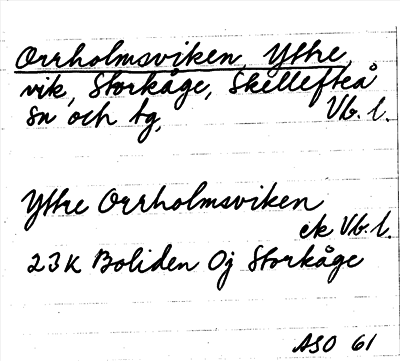 Orrholmsviken, Yttre,
vik, Storkåge, Skellefteå
sn och tg, Vb. l.
Yttre Orrholmsviken
ek Vb. l.
23K Boliden Oj Storkåge
ASO 61